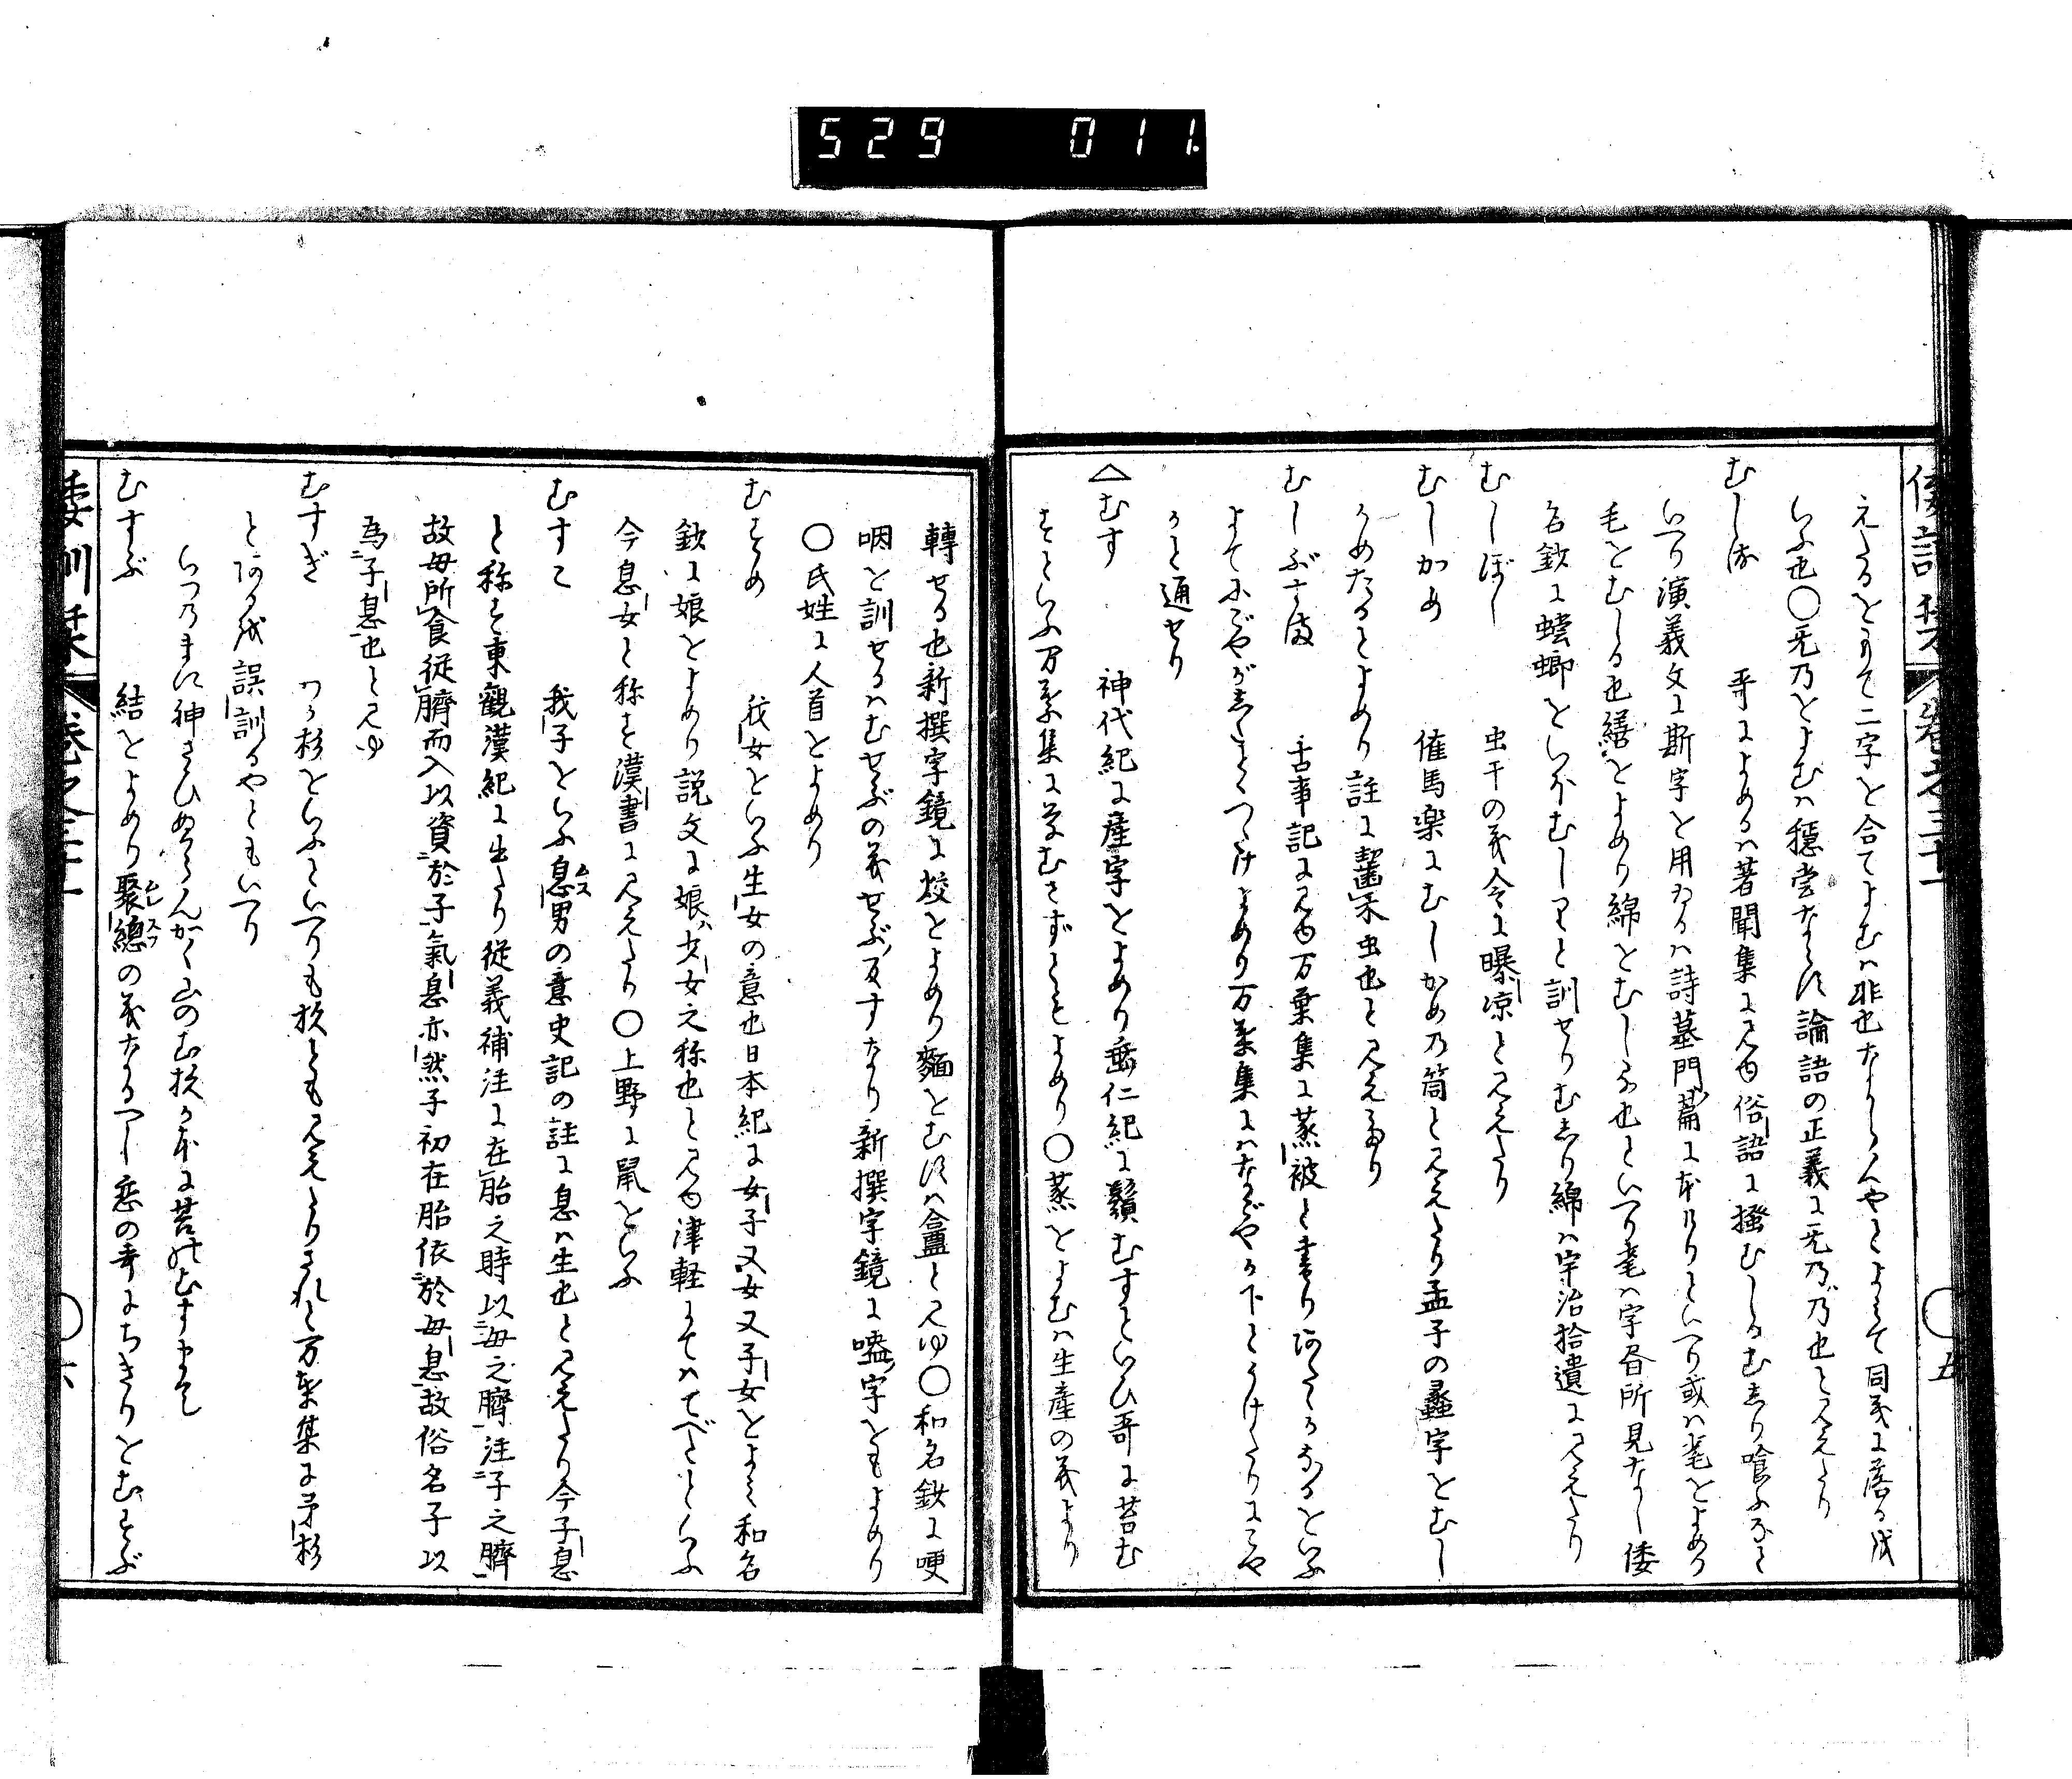 529 011
倭訓栞 巻之三十一 ○五
えたるをもて二字を合てよむは非也なからんやとよみて同義に落る成
いふ也○无乃をよむは穏当ならす論語の正義に无乃乃也と見えたり
むしる 哥によめるは著聞集に見ゆ俗語に掻むしるむしり喰ふなと
いへり演義文に斯字を用るは詩墓門篇に本けりといへり或は毟をよめり
毛をむしる也繕をよめり綿をむしる也といへり毟は字書所見なし倭
名鈔に蟷蜋をいぼむしりと訓せりむしり綿は宇治拾遺に見えたり
むしぼし 虫干の義今に曝凉と見えたり
むしかめ 催馬楽にむしかめの筒と見えたり孟子の蠡字をむし
かめたるとよめり註に齧木虫也と見えたり
むしぶすま 古事記に見ゆ万葉集に蒸被と書りあたゝかなるをいふ
よてにこやがしたとつゝけよめり万葉集にはなごやか下とつけたりにこや
かと通せり
△むす 神代紀に産字をよめり垂仁紀に鬚むすといひ哥に苔む
すといふ万葉集に草むさずともよめり○蒸をよむは生産の義より
轉せる也新撰字鏡に烄をよめり麹をむすは盦と見ゆ○和名鈔に哽
咽を訓せるはむせぶの義せぶ反すなり新撰字鏡に嗑字をもよめり
○氏姓に人首とよめり
むすめ 我女をいふ生女の意也日本紀に女子又女又子女をよみ和名
鈔に娘をよめり説文に娘少女之称也と見ゆ津軽にてはてべたといふ
今息女と称す漢書に見えたり○上野に鼠をいふ
むすこ 我子をいふ息男の意史記の註に息は生也と見えたり今子息
と称す東觀漢紀に出たり從義補注に在胎之時以母之臍注子之臍
故母所食從臍而入以資於子氣息亦然子初在胎依於母息故俗名子以
為子息也と見ゆ
むすぎ わか杉をいふといへりも杉とも見えたりされと万葉集に矛杉
とある成誤訓るやともいへり
いつのまに神さひぬらんかく山のむ杉か本に苔のむすまて
むすぶ 結をよめり聚總の義なるへし恋の哥にちきりをむすぶ
倭訓栞 巻之三十一 ○六